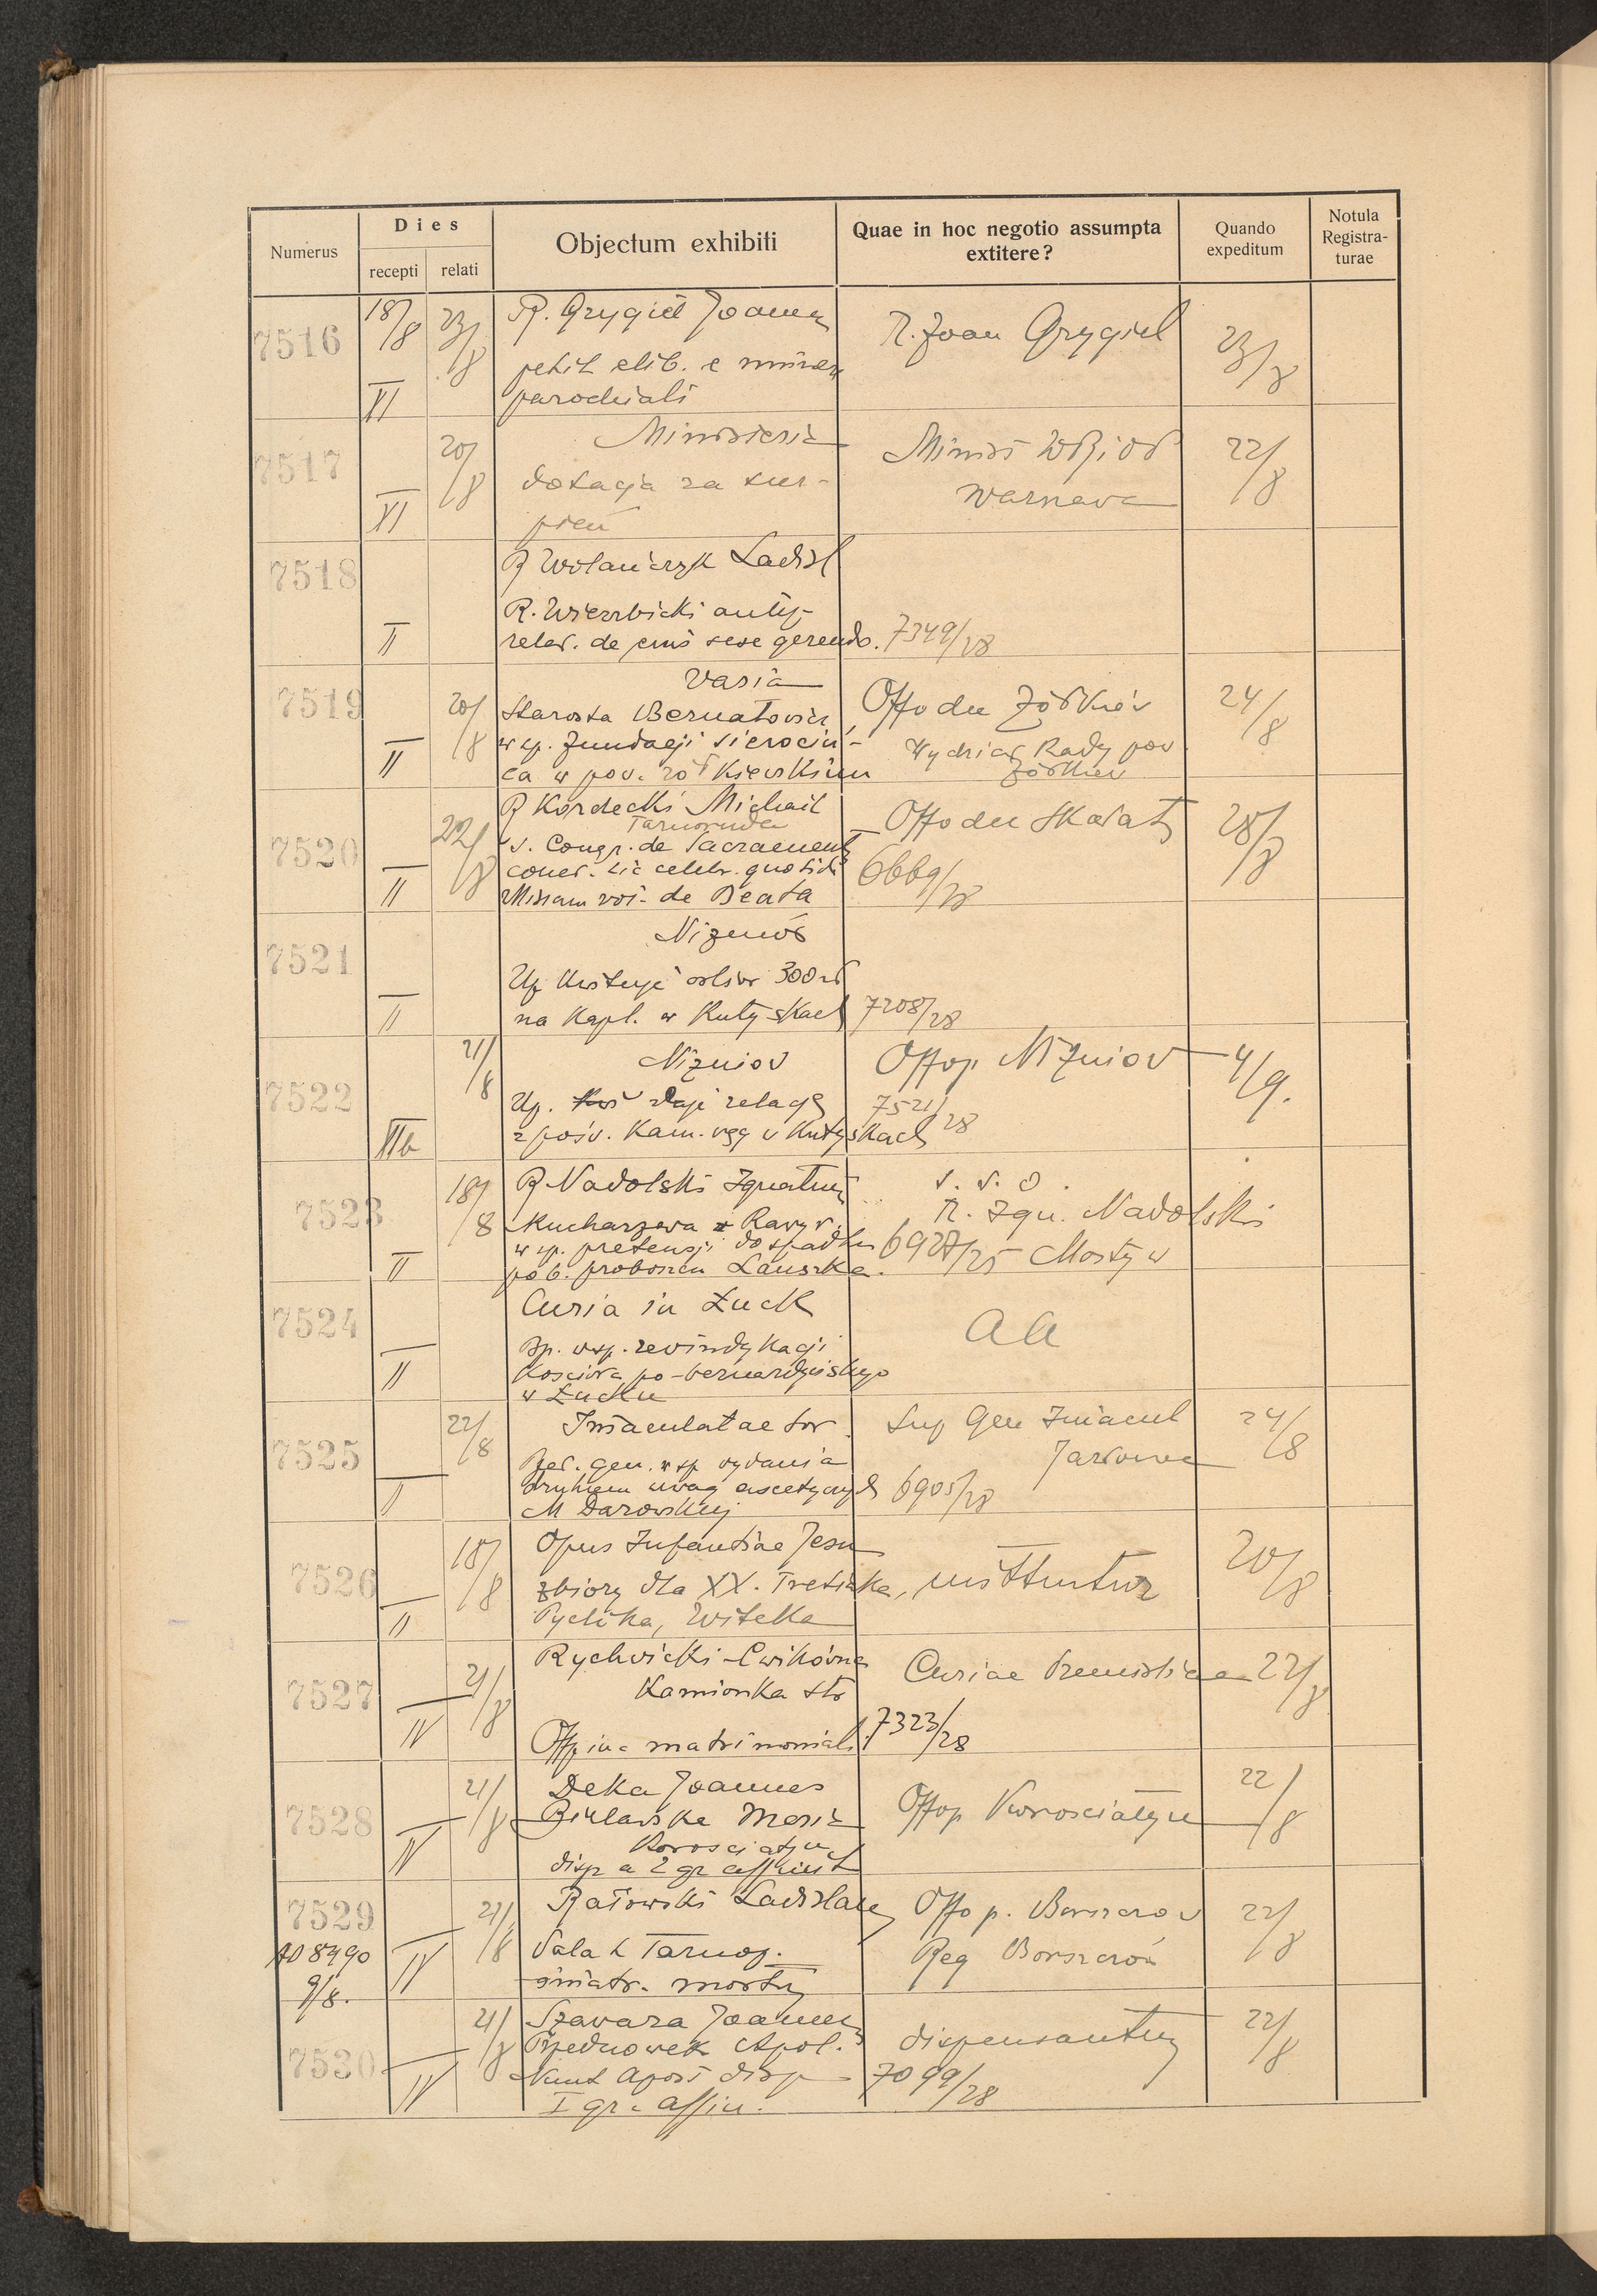 Numerus
Dies
recepti
relati
Objectum exhibiti
Quae in hoc negotio assumpta
extitere?
Quando
expeditum
Notula
Registra-
turae
7516
18/8
23/8
R. Grygiel Joannes
petit elib. e munere
parochiali
R. Joan Grygiel
23/8
VI
7517
20/8
Ministeria
dotacja za sier-
pień
Minist WRiOP
Warszawa
22/8
XI
7518
R Wołańczyk Ladisl
R. Wierzbicki
relat. de sese gerendo. 7349/28
II
7519
20/8
Varia
Starosta Bernatowicz
w sp. fundacji sierociń-
ca w pow. żółkiewskim
Offo dec Żółkiew
Wydział Rady pow
Żółkiew
24/8
II
7520
22/8
R Kordecki Michael
Tarnoruda
S. Congr. de Sacrament
conced. lic celebr. quotidi
Missam voti- de Beata
Offo dec Skałat
6669/28
28/8
II
7521
Niżniów
300 zł
na Kapl. w Kutyskach 7208/28
II
7522
21/8
Niżniov
Up. daje relację
z pośw. Kam. węg w Kutyskach
Offop Niżniov
7521/28
4/9.
IIIb
7523
18/8
R Nadolski Ignatius
Kucharzewa z Rawy r.
w sp. pretensji do spadku
po b. proboszczu Lauszka.
s. s. o.
R. Ign. Nadolski
6927/25 Mosty w
II
7524
Curia in Łuck
Bp. wsp. rewindykacji
Kościoła po-bernardyńskiego
w Łucku
aa
II
7525
22/8
Immaculatae sor.
gen. w sp wydania
drukiem uwag ascetycznych
M Darowskiej
Sup Gen Immacul
Jazłowce
6905/28
24/8
II
7526
18/8
Opus Infantiae Jesu
zbiory dla XX. Tretiaka,
Pyclika, Witeka
mittuntur
20/8
II
7527
21/8
Rychwicki-Ćwikówna
Kamionka str
Offiu- matrimoniali
Curiae Premisliae
7323/28
22/8
IV
7528
21/8
Deka Joannes
Bielawska Maria
Korościatyn
disp a 2 gr affinit
Offop Korościatyn
22/8
IV
7529
AD 8490
9/8.
21/8
Ratowski Ladislaus
Tarnop.
matr. mortu
Offo p. Borszczow
Reg Borszczów
22/8
IV
7530
21/8
Szawara Joannes
Przednowek Apol.
Nunt Apost disp
I gr. affin.
dispensantur
7099/28
22/8
IV